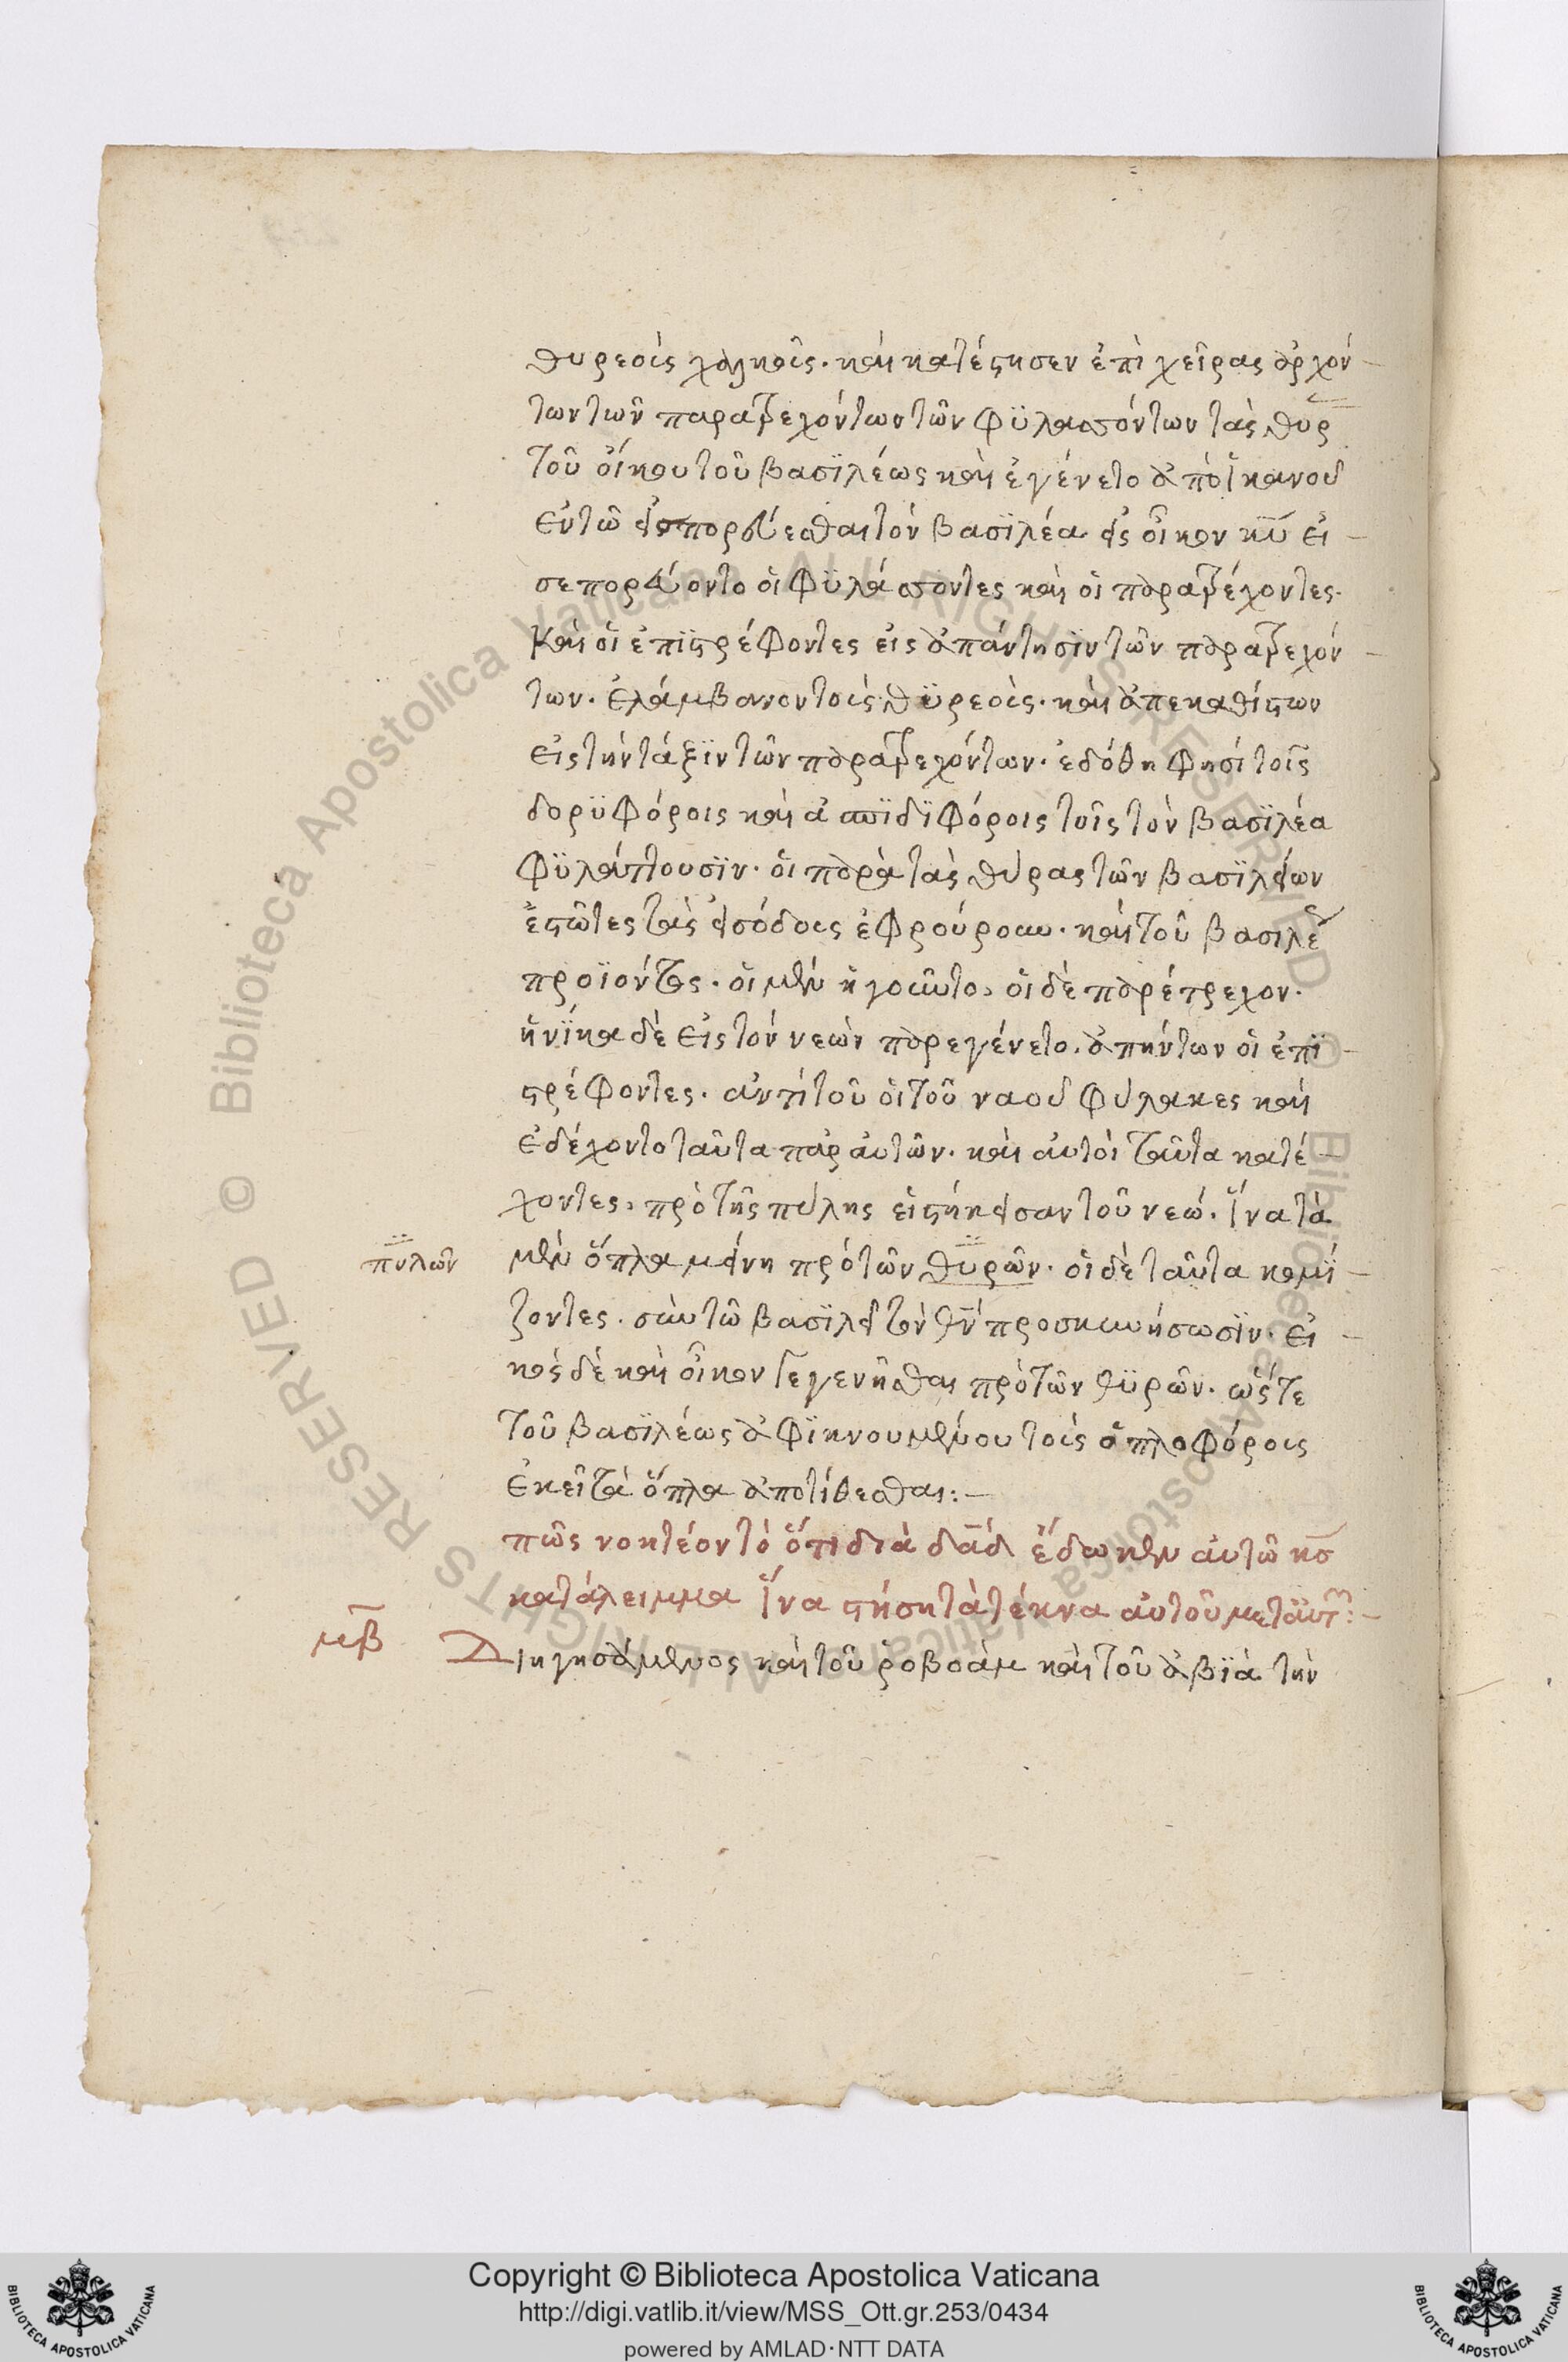 θυρεοὺς χαλκοῦς. καὶ κατέστησεν ἐπὶ χεῖρας ἀρχόν-
των τῶν παρατρεχόντων τῶν φϋλασσόντων τὰς θύρ
τοῦ οἴκου τοῦ βασϊλέως καὶ ἐγένετο ἀπὸ ἱκανοῦ
ἐν τῶ εἰσπορεύεσθαι τὸν βασϊλέα εἰς οἶκον κ̅υ̅ εἰ-
σεπορεύοντο οἱ φϋλάσσοντες καὶ οἱ παρατρέχοντες.
καὶ οἱ ἐπϊστρέφοντες εἰς ἀπάντησϊν τῶν παρατρεχόν-
των. ἐλάμβανον τοὺς θϋρεοὺς. καὶ ἀπεκαθίστων
εἰς τὴν τάξϊν τῶν παρατρεχόντων. ἐδόθη φησὶ τοῖς
δορϋφόροις καὶ ἀσπϊδϊφόροις τοῖς τὸν βασϊλέα
φϋλάττουσϊν. οἱ παρὰ τὰς θύρας τῶν βασϊλείων
ἑστῶτες τὰς εἰσόδους ἐφρούρουν. καὶ τοῦ βασιλέ
προϊόντος. οἱ μὲν ἡγοῦντο, οἱ δὲ παρέτρεχον.
ἡνϊκα δὲ εἰς τὸν νεὼν παρεγένετο. ἀπήντων οἱ ἐπϊ-
στρέφοντες. ἀντὶ τοῦ οἱ τοῦ ναοῦ φύλακες καὶ
ἐδέχοντο ταῦτα παρ αὐτῶν. καὶ αὐτοὶ ταῦτα κατέ-
χοντες, πρὸ τῆς πύλης εἱστήκεισαν τοῦ νεώ. ἵνα τὰ
πυλῶν
μὲν ὅπλα μείνη πρὸ τῶν θυρῶν. οἱ δὲ ταῦτα κομϊ-
ζοντες. σὺν τῶ βασϊλεῖ τὸν θ̅ν̅ προσκυνήσωσϊν. εἰ-
κὸς δὲ καὶ οἶκον γεγενῆσθαι πρὸ τῶν θϋρῶν. ὥστε
τοῦ βασϊλέως ἀφϊκνουμένου τοὺς ὁπλοφόρους
ἐκεῖ τὰ ὅπλα ἀποτίθεσθαι:-
πῶς νοητέον τὸ ὅτι διὰ δ̅α̅δ̅ ἔδωκεν αὐτῶ κ̅ς̅
κατάλειμμα ἵνα στήση τὰ τέκνα αὐτοῦ μετ αὐτ:-
μ̅β̅
Διηγησάμενος καὶ τοῦ ῥοβοὰμ καὶ τοῦ ἀβϊὰ τὴν
Copyright © Biblioteca Apostolica Vaticana
http://digi.vatlib.it/view/MSS_Ott.gr.253/0434
powered by AMLAD·NTT DATA
BIBLIOTECA APOSTOLICA VATICANA
BIBLIOTECA APOSTOLICA VATICANA
© Biblioteca Apostolica Vaticana ALL RIGHTS RESERVED
© Biblioteca Apostolica Vaticana ALL RIGHTS RESERVED